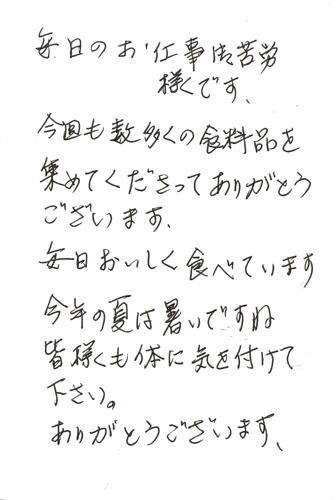 毎日のお仕事御苦労
様くです、
今回も数多くの食料品を
集めてくださってありがとう
ございます、
毎日おいしく食べています
今年の夏は暑いですね
皆様くも体に気を付けて
下さい。
ありがとうございます、